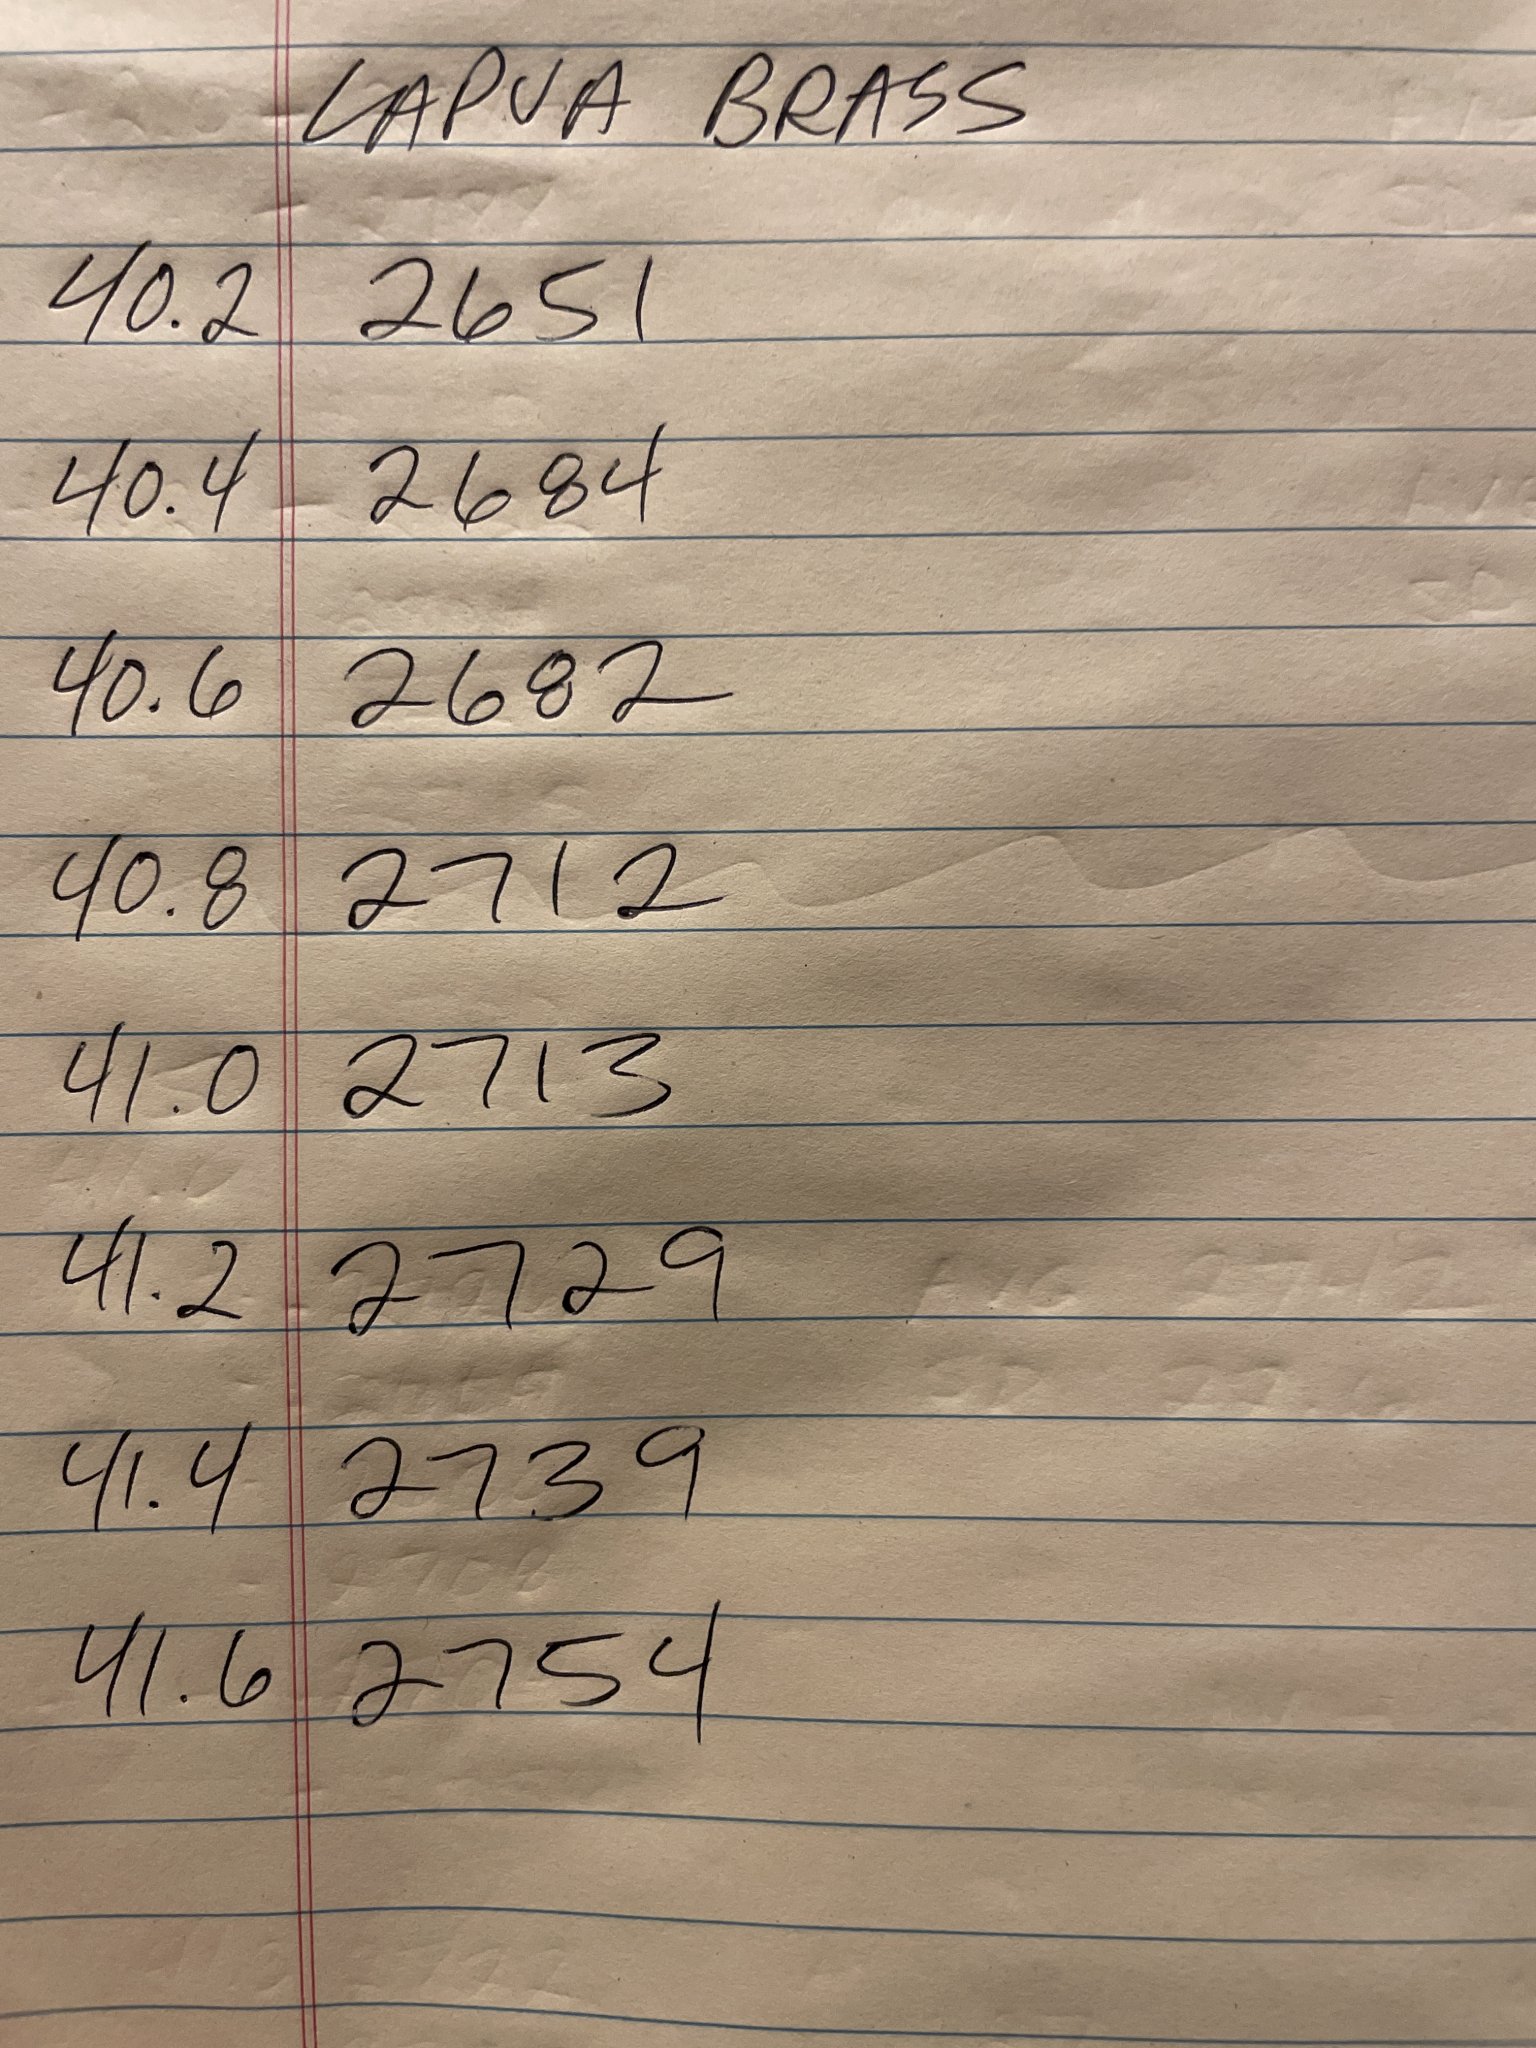 LAPUA BRASS
40.2 2651
40.4 2684
40.6 2682
40.8 2712
41.0 2713
41.2 2729
41.4 2739
41.6 2754